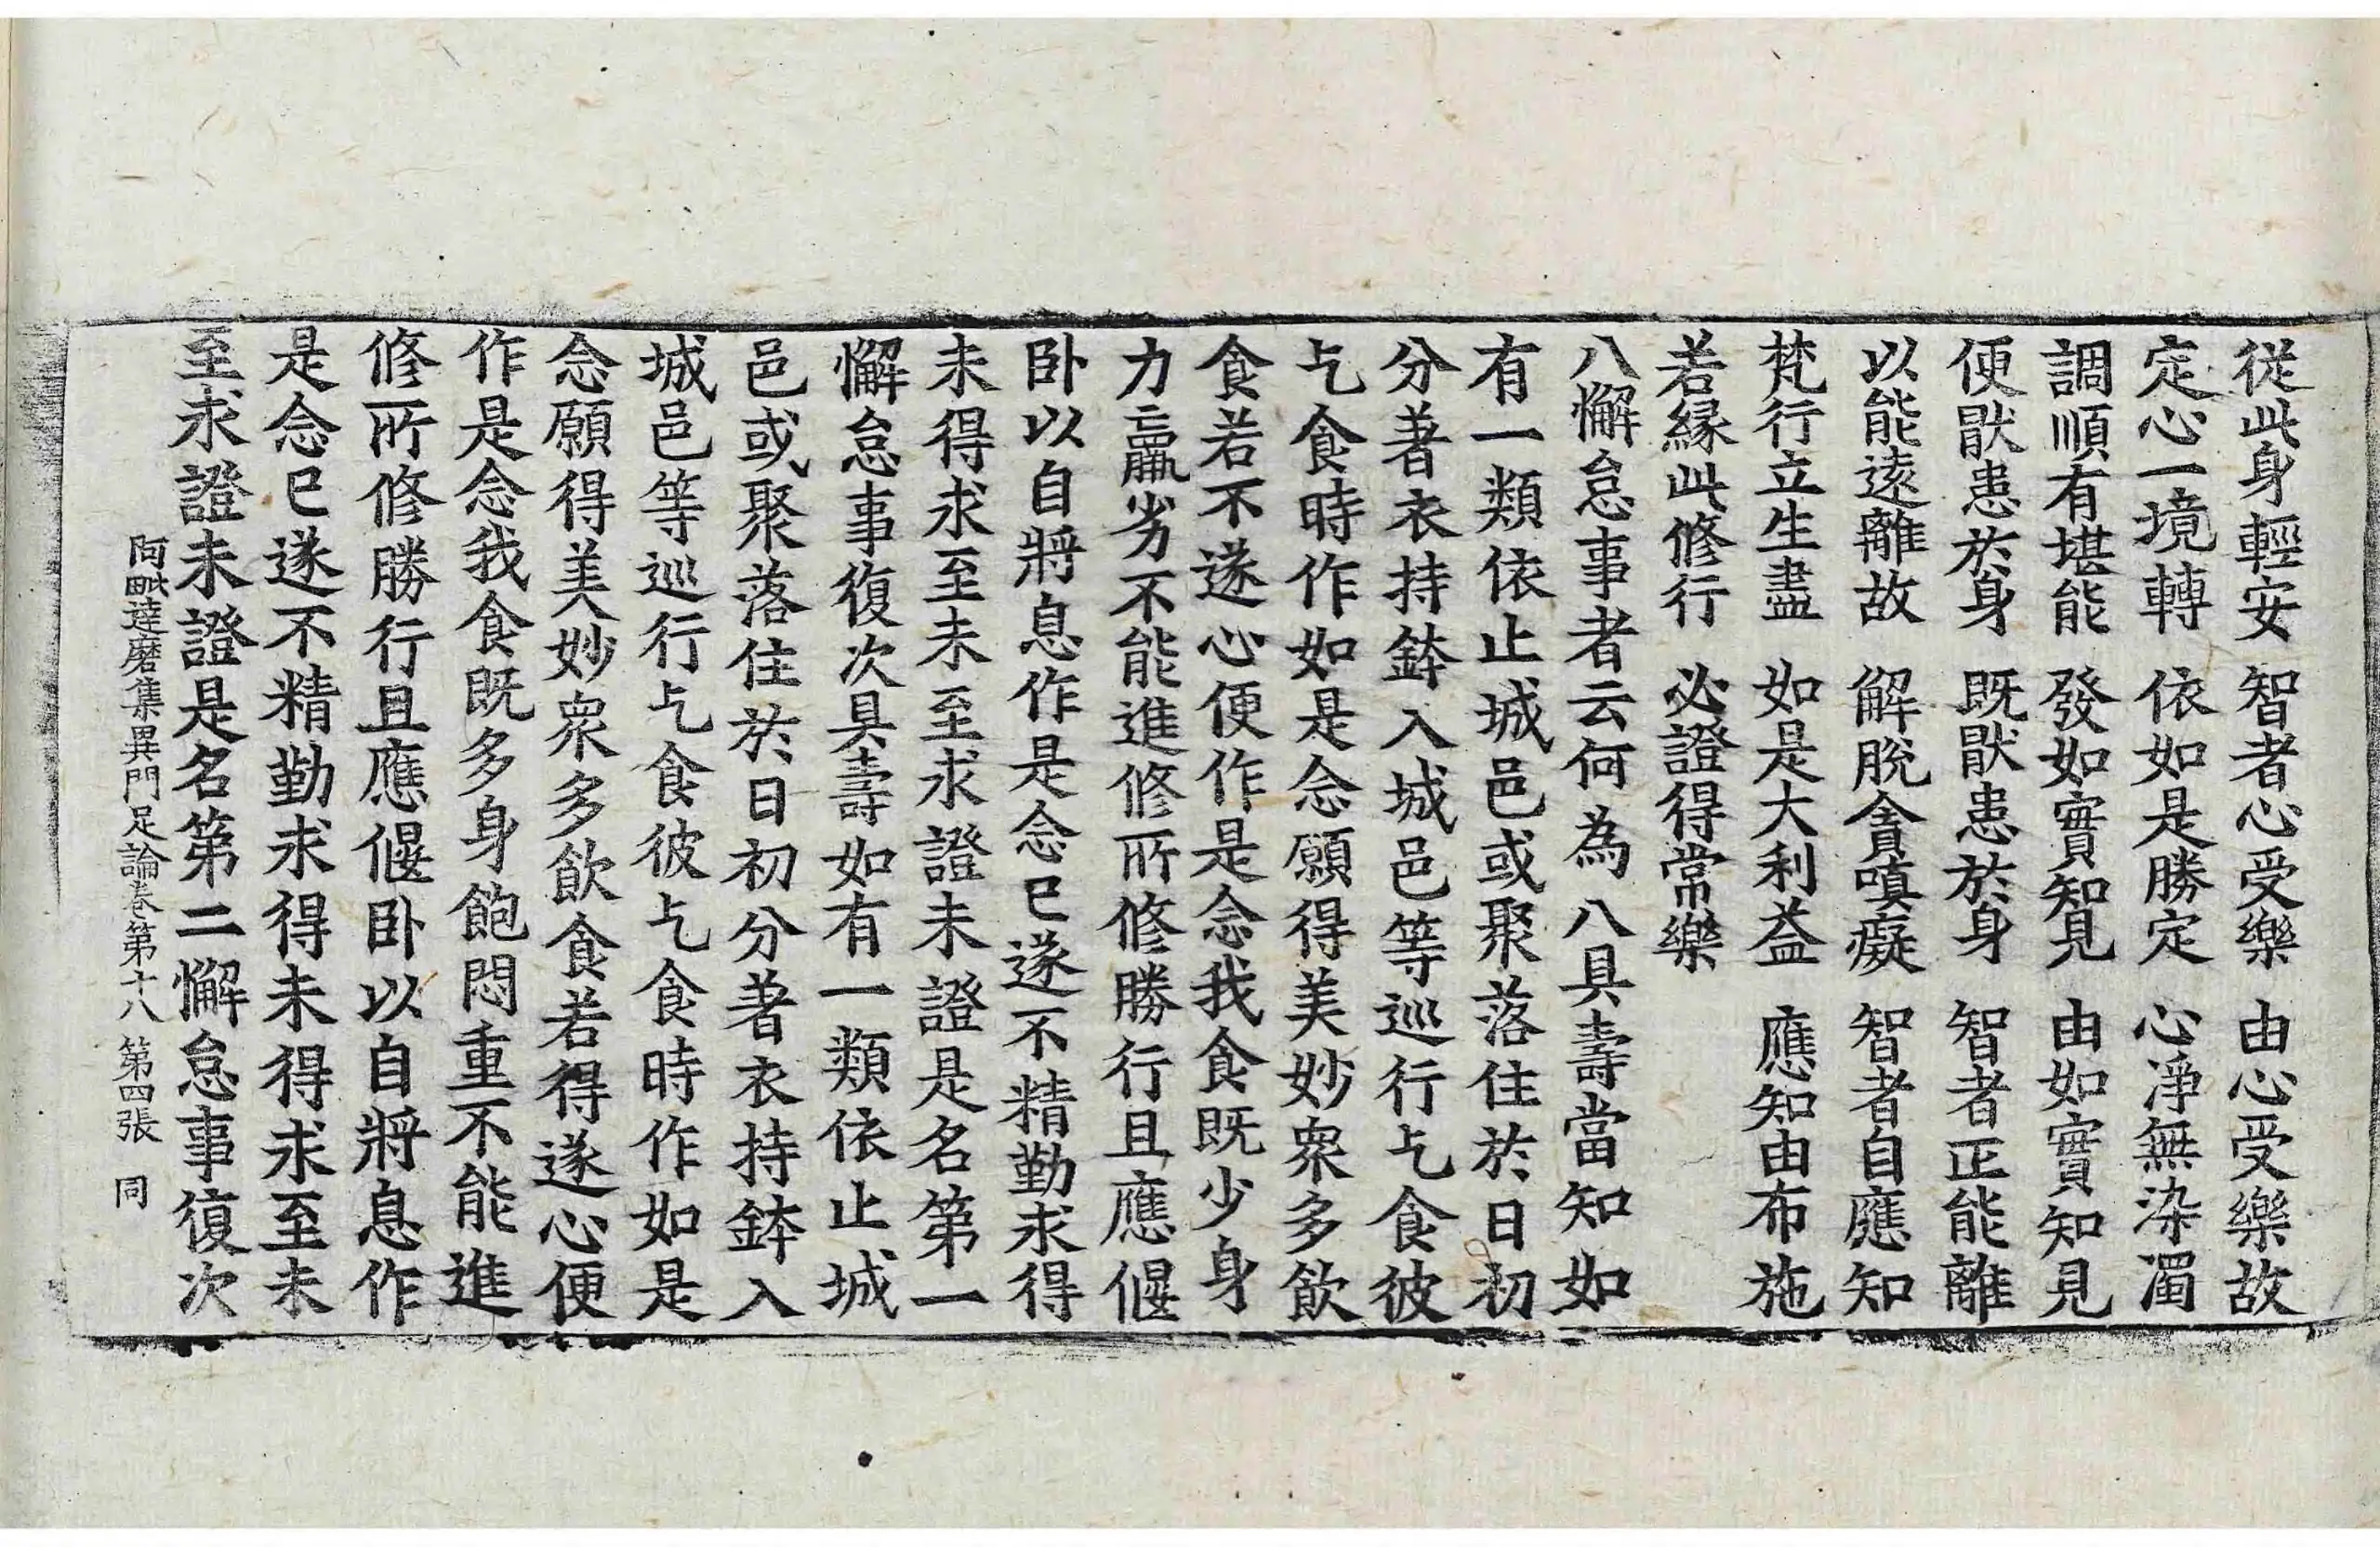 從此身輕安　智者心受樂　由心受樂故
定心一境轉　依如是勝定　心淨無染濁
調順有堪能　發如實知見　由如實知見
便猒患於身　既猒患於身　智者正能離
以能遠離故　解脫貪嗔癡　智者自應知
梵行立生盡　如是大利益　應知由布施
若緣此修行　必證得常樂
八懈怠事者云何為八具壽當知如
有一類依止城邑或聚落住於日初
分著衣持鉢入城邑等巡行乞食彼
乞食時作如是念願得美妙衆多飲
食若不遂心便作是念我食既少身
力羸劣不能進修所修勝行且應偃
卧以自將息作是念已遂不精勤求得
未得求至未至求證未證是名第一
懈怠事復次具壽如有一類依止城
邑或聚落住於日初分著衣持鉢入
城邑等巡行乞食彼乞食時作如是
念願得美妙衆多飲食若得遂心便
作是念我食既多身飽悶重不能進
修所修勝行且應偃卧以自將息作
是念已遂不精勤求得未得求至未
至求證未證是名第二懈怠事復次
阿毗達磨集異門足論卷第十八　第四張　同